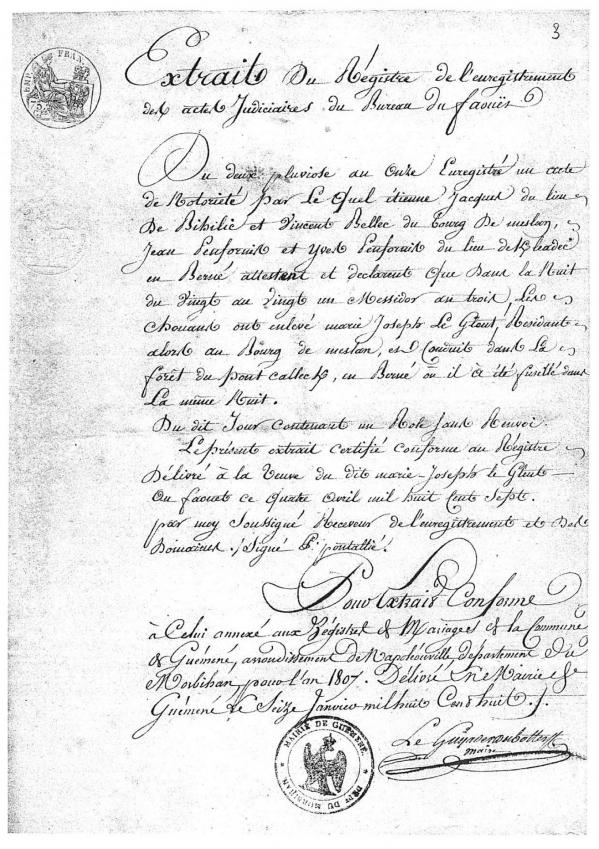 3
EMP. FRAN.
75
Extrait Du Régistre de l'enregistrement
des actes Judiciaires du Bureau du faouës
Du deux pluviose an Onze Enregistré un acte
de Notorieté par Le Quel étienne Jacques du lieu
De Bihilic et Vincent Bellec du Bourg De meslan,
Jean Penfornis et Yves Penfornis du lieu de
en Berné attestent et declarent Que Dans la Nuit
du Vingt au Vingt un Messidor an trois, Les
Chouans ont enlevé marie Joseph Le Gleut, Residant
alors au Bourg de meslan, et Conduit dans La
forêt du pont calleck, en Berné où il a été fusillé dans
La même Nuit.
Du dit Jour Contenant un Role sans Renvoi.
Le présent extrait certifié conforme au Régistre
Délivré à la Veuve du dit marie-Joseph le Gleut
Au faouet ce quatre avril mil huit Cent Sept.
par moy Soussigné Receveur de l'enregistrement et Des
Domaines. Signé
Pour Extrait Conforme
à Celui annexé aux Régistres de Mariages de la Commune
de Guémené, arrondissement De Napoleonville, département Du
Morbihan, pour l'an 1807. Délivré En Mairie de
Guémené Le Seize Janvier mil huit Cent huit.
Le
maire
MAIRIE DE GUEMENÉ
DEPt DU MORBIHAN